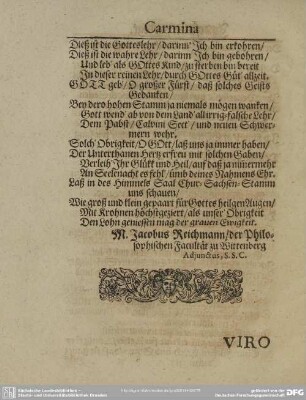 Carmina
Dieß ist die Gotteslehr / darum̃ Ich bin erkohren /
Dieß ist die wahre Lehr / darinn Ich bin gebohren /
Und leb' als GOttes Kind / zu sterben bin bereit
In dieser reinen Lehr / durch Gottes Güt' allzeit.
GOTT geb / O grosser Fürst / daß solches Geists
Gedanken /
Bey dero hohen Stamm ja niemals mögen wanken /
Gott wend' ab von dem Land' all irrig-falsche Lehr /
Dem Pabst / Calvinn Sect' / und neuen Schwer-
mern wehr.
Solch' Obrigkeit / O GOtt / laß uns ja immer haben /
Der Unterthanen Hertz erfreu mit solchen Gaben /
Verleih Ihr Glükk und Heil / auf daß ja nimermehr
An Seelenacht es fehl / umb deines Nahmens Ehr.
Laß in des Himmels Saal Chur-Sachsen-Stamm
uns schauen /
Wie groß und klein gepaart für Gottes heilgen Augen /
Mit Krohnen höchstgeziert / als unser' Obrigkeit
Den Lohn geniessen mag der grauen Ewigkeit.
M. Jacobus Reichmann / der Philo-
sophischen Facultät zu Wittenberg
Adjunctus, S. S. C.
VIRO